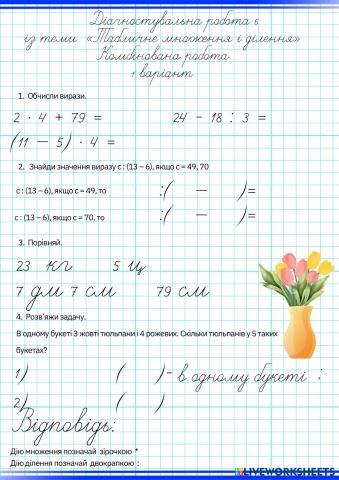 Діагностувальна робота 6
із теми «Табличне множення і ділення»
Комбінована робота
1 варіант
1. Обчисли вирази.
2 · 4 + 79 = 24 - 18 : 3 =
(11 — 5) · 4 =
2. Знайди значення виразу с : (13 – 6), якщо с = 49, 70
с : (13 – 6), якщо с = 49, то :( — )=
с : (13 – 6), якщо с = 70, то :( — )=
3. Порівняй.
23 кг 5 ц
7 дм 7 см 79 см
4. Розв'яжи задачу.
В одному букеті 3 жовті тюльпани і 4 рожевих. Скільки тюльпанів у 5 таких
букетах?
1) ( )- в одному букеті :
2) ( )
Відповідь:
Дію множення позначай зірочкою *
Дію ділення позначай двокрапкою :
LIVEWORKSHEETS